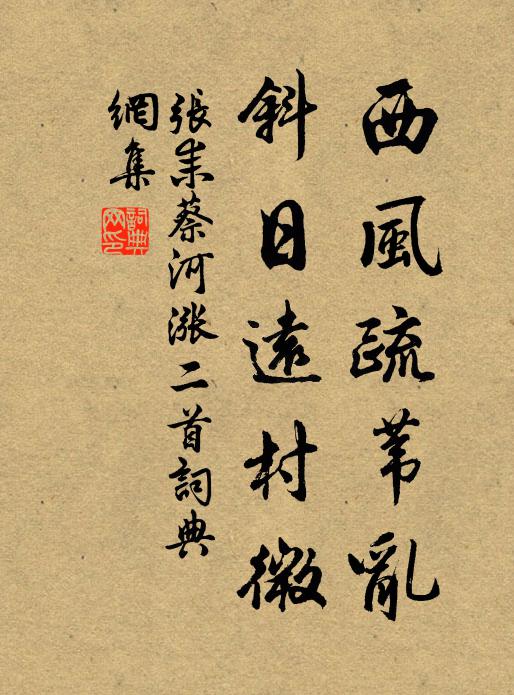 西風疏葦亂
斜日遠村微
張耒蔡河漲二首詞典
網集
詞典
网印